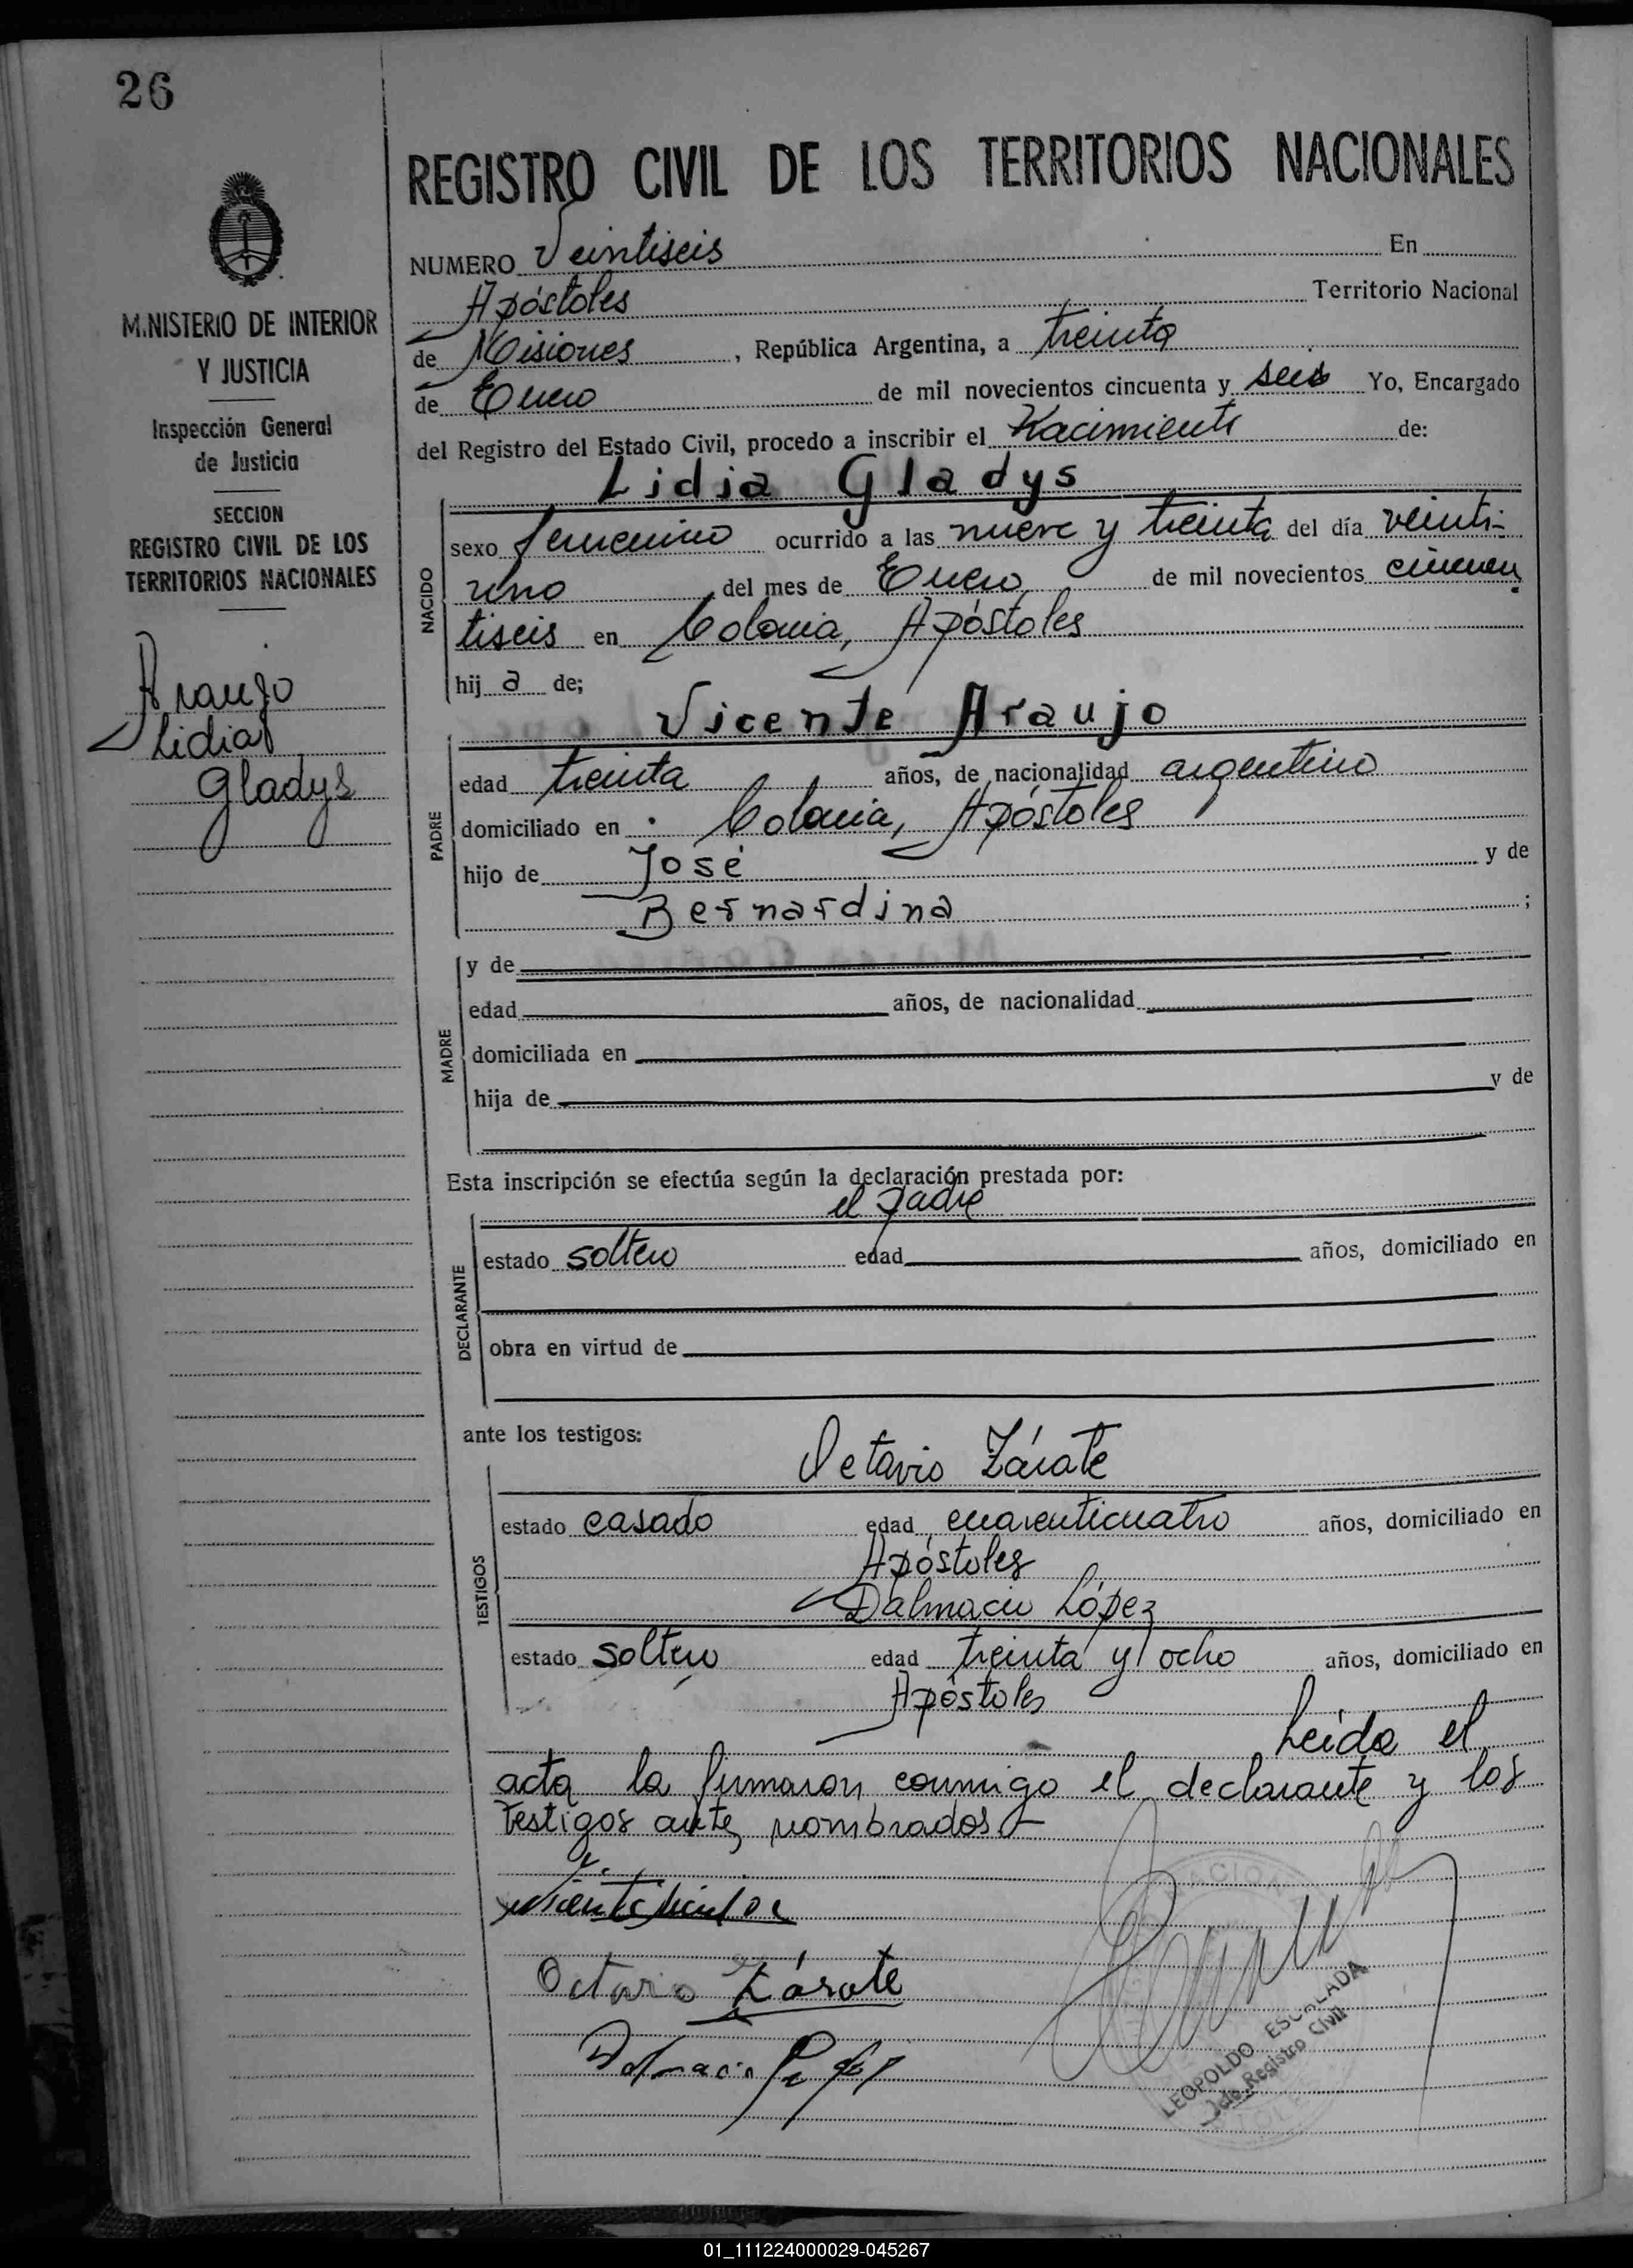 26
REGISTRO CIVIL DE LOS TERRITORIOS NACIONALES
NUMERO Veintiseis En
Apóstoles Territorio Nacional
de Misiones , República Argentina, a treinta
de Enero de mil novecientos cincuenta y seis Yo, Encargado
del Registro del Estado Civil, procedo a inscribir el Nacimiento de:
MINISTERIO DE INTERIOR
Y JUSTICIA
Inspección General
de Justicia
SECCION
REGISTRO CIVIL DE LOS
TERRITORIOS NACIONALES
Araujo
Lidia
Gladys
NACIDO
Lidia Gladys
sexo femenino ocurrido a las nueve y treinta del día veinti-
uno del mes de Enero de mil novecientos cincuen
tiseis en Colonia, Apóstoles
hij a de;
PADRE
Vicente Araujo
edad treinta años, de nacionalidad argentino
domiciliado en Colonia, Apóstoles
hijo de José y de
Bernardina ;
MADRE
y de
edad años, de nacionalidad
domiciliada en
hija de y de
Esta inscripción se efectúa según la declaración prestada por:
DECLARANTE
el padre
estado soltero edad años, domiciliado en
obra en virtud de
ante los testigos:
TESTIGOS
Octavio Zárate
estado casado edad cuarenticuatro años, domiciliado en
Apóstoles
Dalmacio López
estado soltero edad treinta y ocho años, domiciliado en
Apóstoles
Leida el
acta la firmaron conmigo el declarante y los
testigos ante nombrados
Octavio Zárate
LEOPOLDO ESCALADA
Jefe Registro Civil
01_111224000029-045267